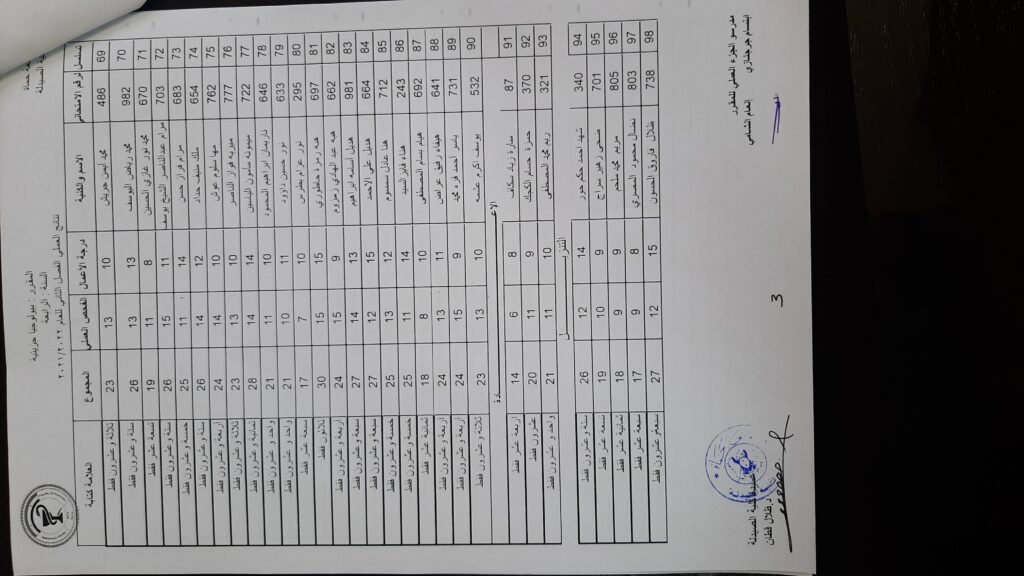 نتائج العملي الفصل الثاني للعام ٢٠٢١/٢٠٢٢
السنة : الرابعة
المقرر : بيولوجيا جزيئية
تسلسل الرقم الامتحاني الاسم والكنية درجة الاعمال الفحص العملي المجموع العلامة كتابة
69 486 محمد ايمن جرىش 10 13 23 ثلاثة و عشرون فقط
70 982 محمد رياض اليوسف 13 13 26 ستة و عشرون فقط
71 670 محمد نور غازي الحسين 8 11 19 تسعة عشر فقط
72 703 مرام عبدالناصر الشيخ يوسف 11 15 26 ستة و عشرون فقط
73 683 مرام فراز حسن 14 11 25 خمسة و عشرون فقط
74 654 ملك سيف حداد 12 14 26 ستة و عشرون فقط
75 762 مها سلوم عوض 10 14 24 اربعة و عشرون فقط
76 777 مورية فواز الناصر 10 13 23 ثلاثة و عشرون فقط
77 722 ميمونه مأمون الياسين 14 14 28 ثمانية و عشرون فقط
78 646 ناريمان ابراهيم المحمود 10 11 21 واحد و عشرون فقط
79 633 نور حسين داوود 11 10 21 واحد و عشرون فقط
80 295 نور عزام بطرس 10 7 17 سبعة عشر فقط
81 697 هبه رمزة خاطوري 15 15 30 ثلاثون فقط
82 662 هبه عبد الهادي زمزوم 9 15 24 اربعة و عشرون فقط
83 981 هديل اسامه ابراهيم 13 14 27 سبعة و عشرون فقط
84 664 هديل علي الاحمد 15 12 27 سبعة و عشرون فقط
85 712 هنا عادل سمسوم 12 13 25 خمسة و عشرون فقط
86 243 هناء فايز السيد 14 11 25 خمسة و عشرون فقط
87 692 هيام بسام المصطفى 10 8 18 ثمانية عشر فقط
88 641 هيفاء رفيق عراض 11 13 24 اربعة و عشرون فقط
89 731 ياسر احمد قره محمد 9 15 24 اربعة و عشرون فقط
90 532 يوسف اكرم عتمه 10 13 23 ثلاثة و عشرون فقط
الاعـــــادة
91 87 سارة زياد سكاف 8 6 14 اربعة عشر فقط
92 370 حمزة حسام الكجك 9 11 20 عشرون فقط
93 321 ريم محمد المصطفى 10 11 21 واحد و عشرون فقط
التنزيـــــل
94 340 شهد احمد حكم حور 14 12 26 ستة و عشرون فقط
95 701 ضحى زهير سراج 9 10 19 تسعة عشر فقط
96 805 مريم محمد ملحم 9 9 18 ثمانية عشر فقط
97 803 نضال محمود المصري 8 9 17 سبعة عشر فقط
98 738 طلال فاروق الحسون 15 12 27 سبعة و عشرون فقط
مدرسو الجزء العملي للمقرر
ابتسام جرجنازي انعام الشامي
3
كلية الصيدلة
د.طلال قطان